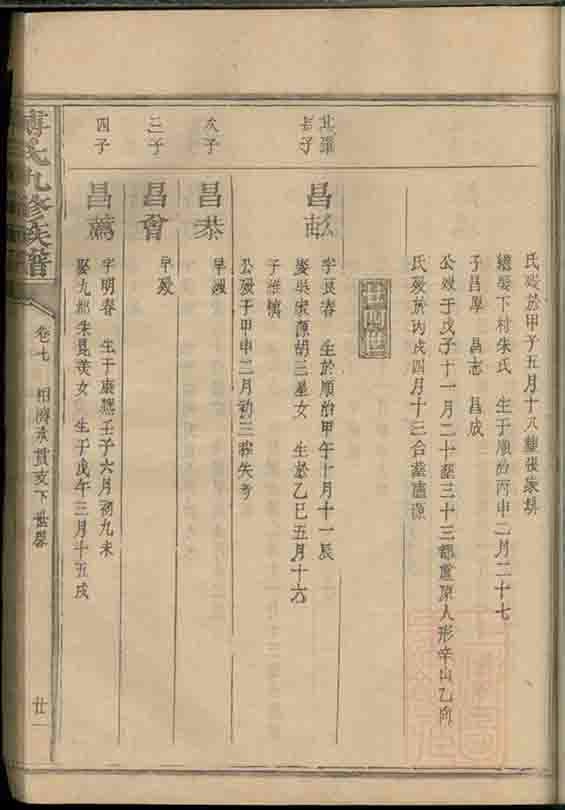 氏歿於甲子五月十八塟張家垻
繼娶下村朱氏 生于順治丙申二月二十七
子昌厚 昌志 昌成
公歿于戊子十一月二十塟三十三都 原人形辛山乙向
氏歿於丙戌四月十三合塟
長子
昌
字良春 生於順治甲午十月十一辰
娶吳宋源胡三星女 生於乙巳五月十六
子
公歿于甲申二月初三塟失考
次子
昌恭
早歿
三子
昌會
早歿
四子
昌薦
字明春 生于康熙壬子六月初九未
娶九都朱 美女 生于戊午三月十五戌
氏九修族譜
卷七
下世
廿一